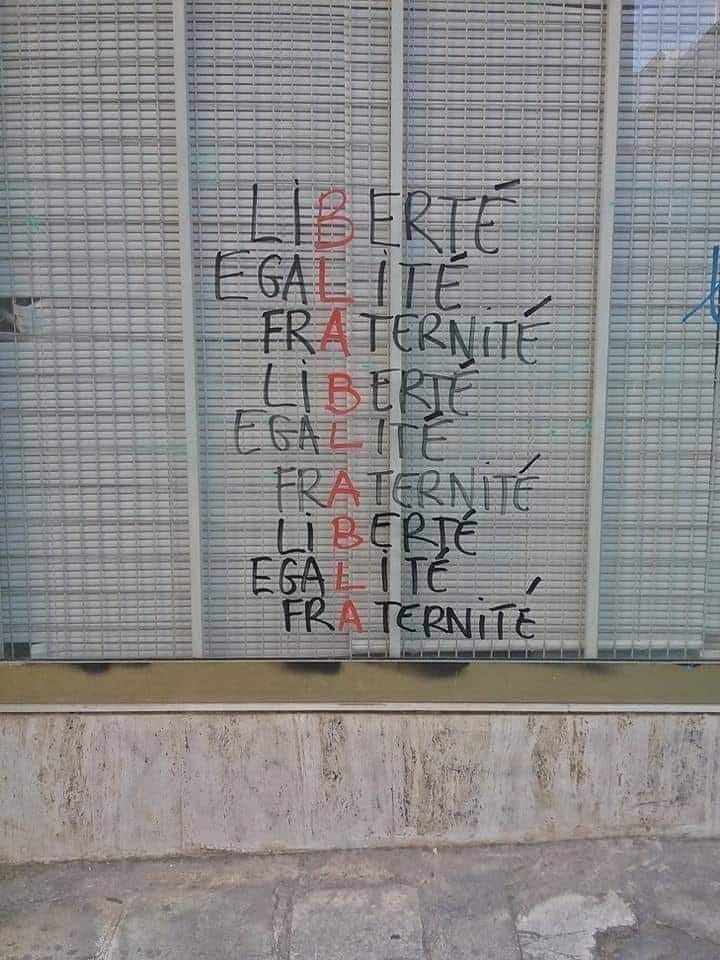 LiBERTÉ
EGALITÉ
FRATERNiTÉ
LiBERTÉ
EGALiTÉ
FRATERNiTÉ
LiBERTÉ
EGALiTÉ
FRATERNiTÉ